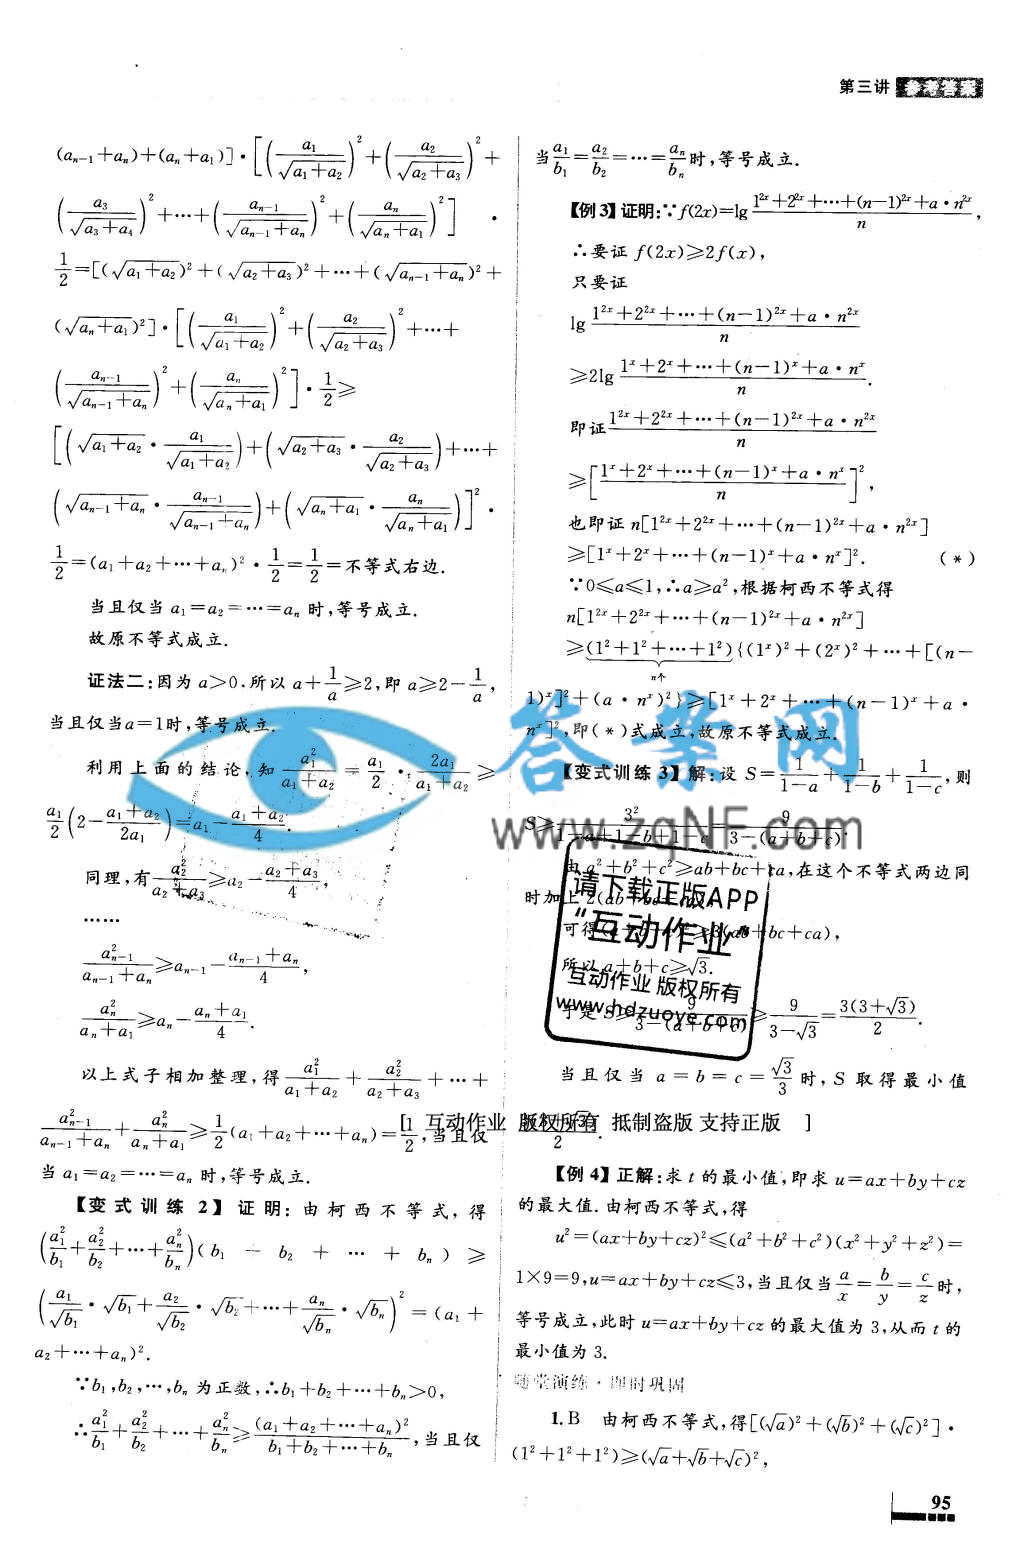 第三讲 参考答案
(a_{n-1}+a_n)+(a_n+a_1)]·[(a_1/√(a_1+a_2))²+(a_2/√(a_2+a_3))²+
(a_3/√(a_3+a_4))²+···+(a_{n-1}/√(a_{n-1}+a_n))²+(a_n/√(a_n+a_1))²]·
1/2=[(√(a_1+a_2))²+(√(a_2+a_3))²+···+(√(a_{n-1}+a_n))²+
(√(a_n+a_1))²]·[(a_1/√(a_1+a_2))²+(a_2/√(a_2+a_3))²+···+
(a_{n-1}/√(a_{n-1}+a_n))²+(a_n/√(a_n+a_1))²]·1/2≥
[(√(a_1+a_2)·a_1/√(a_1+a_2))+(√(a_2+a_3)·a_2/√(a_2+a_3))+···+
(√(a_{n-1}+a_n)·a_{n-1}/√(a_{n-1}+a_n))+(√(a_n+a_1)·a_n/√(a_n+a_1))]²·
1/2=(a_1+a_2+···+a_n)²·1/2=1/2=不等式右边.
当且仅当 a_1=a_2=···=a_n 时,等号成立.
故原不等式成立.
证法二:因为 a>0,所以 a+1/a≥2,即 a≥2-1/a,
当且仅当a=1时,等号成立.
利用上面的结论,知 a_1²/(a_1+a_2)=a_1/2·2a_1/(a_1+a_2)≥
a_1/2(2-(a_1+a_2)/2a_1)=a_1-(a_1+a_2)/4.
同理,有 a_2²/(a_2+a_3)≥a_2-(a_2+a_3)/4,
······
a_{n-1}²/(a_{n-1}+a_n)≥a_{n-1}-(a_{n-1}+a_n)/4,
a_n²/(a_n+a_1)≥a_n-(a_n+a_1)/4.
以上式子相加整理,得 a_1²/(a_1+a_2)+a_2²/(a_2+a_3)+···+
a_{n-1}²/(a_{n-1}+a_n)+a_n²/(a_n+a_1)≥1/2(a_1+a_2+···+a_n)=1/2,当且仅
当 a_1=a_2=···=a_n 时,等号成立.
【变式训练 2】 证明:由柯西不等式,得
(a_1²/b_1+a_2²/b_2+···+a_n²/b_n)(b_1+b_2+···+b_n)≥
(a_1/√b_1·√b_1+a_2/√b_2·√b_2+···+a_n/√b_n·√b_n)²=(a_1+
a_2+···+a_n)².
∵b_1,b_2,···,b_n 为正数,∴b_1+b_2+···+b_n>0,
∴a_1²/b_1+a_2²/b_2+···+a_n²/b_n≥(a_1+a_2+···+a_n)²/(b_1+b_2+···+b_n),当且仅
当 a_1/b_1=a_2/b_2=···=a_n/b_n 时,等号成立.
【例 3】证明:∵f(2x)=lg (1^{2x}+2^{2x}+···+(n-1)^{2x}+a·n^{2x})/n,
∴要证 f(2x)≥2f(x),
只要证
lg (1^{2x}+2^{2x}+···+(n-1)^{2x}+a·n^{2x})/n
≥2lg (1^x+2^x+···+(n-1)^x+a·n^x)/n.
即证(1^{2x}+2^{2x}+···+(n-1)^{2x}+a·n^{2x})/n
≥[(1^x+2^x+···+(n-1)^x+a·n^x)/n]²,
也即证 n[1^{2x}+2^{2x}+···+(n-1)^{2x}+a·n^{2x}]
≥[1^x+2^x+···+(n-1)^x+a·n^x]². (*)
∵0≤a≤1,∴a≥a²,根据柯西不等式得
n[1^{2x}+2^{2x}+···+(n-1)^{2x}+a·n^{2x}]
≥(1²+1²+···+1²){(1^x)²+(2^x)²+···+[(n-
n个
1)^x]²+(a·n^x)²}≥[1^x+2^x+···+(n-1)^x+a·
n^x]²,即(*)式成立,故原不等式成立.
【变式训练 3】解:设 S=1/(1-a)+1/(1-b)+1/(1-c),则
S≥3²/(1-a+1-b+1-c)=9/(3-(a+b+c)).
由 a²+b²+c²≥ab+bc+ca,在这个不等式两边同
时加上 2(ab+bc+ca),
可得(a+b+c)²≥3(ab+bc+ca),
所以 a+b+c≥√3.
于是 S≥9/(3-(a+b+c))≥9/(3-√3)=3(3+√3)/2.
当且仅当 a=b=c=√3/3 时,S 取得最小值
2.
【例 4】正解:求 t 的最小值,即求 u=ax+by+cz
的最大值.由柯西不等式,得
u²=(ax+by+cz)²≤(a²+b²+c²)(x²+y²+z²)=
1×9=9,u=ax+by+cz≤3,当且仅当 a/x=b/y=c/z 时,
等号成立,此时 u=ax+by+cz 的最大值为 3,从而 t 的
最小值为 3.
随堂演练·即时巩固
1. B 由柯西不等式,得[(√a)²+(√b)²+(√c)²]·
(1²+1²+1²)≥(√a+√b+√c)²,
95
答案网
www.zqNF.com
请下载正版APP
“互动作业”
互动作业 版权所有
www.hdzuoye.com
[ 互动作业 版权所有 抵制盗版 支持正版 ]